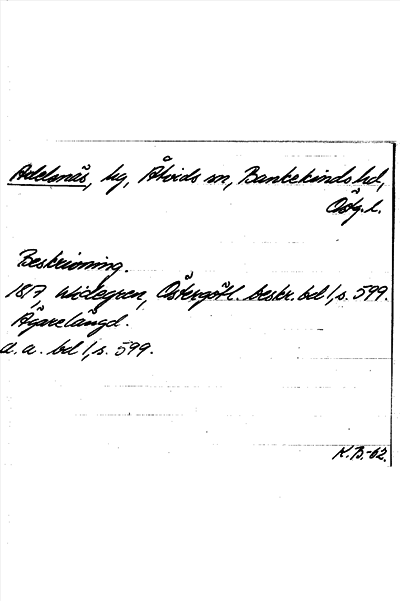 Adelsnäs, hg, Åtvids sn, Bankekinds hd,
Östg. l.
Beskrivning.
1817, Widegren, Östergötl. beskr. bd 1, s. 599.
Ägarelängd.
d. a. bd 1, s. 599.
K.B.-62.